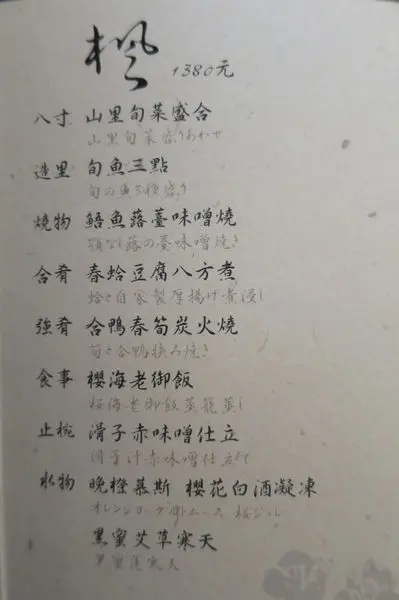 楓 1380元
八寸 山里旬菜盛合
山里旬菜盛りあわせ
造里 旬魚三點
旬の魚3種盛り
燒物 鯃魚蕗薹味噌燒
蕗の薹味噌焼き
合肴 春蛤豆腐八方煮
蛤と自家製厚揚げ煮浸し
強肴 合鴨春筍炭火燒
筍と合鴨挟み焼き
食事 櫻海老御飯
桜海老御飯蒸籠蒸し
止椀 滑子赤味噌仕立
滑子汁赤味噌仕立て
水物 晚橙慕斯 櫻花白酒凝凍
オレンジヨーグルトムース 桜ジュレ
黑蜜艾草寒天
黒蜜蓬寒天